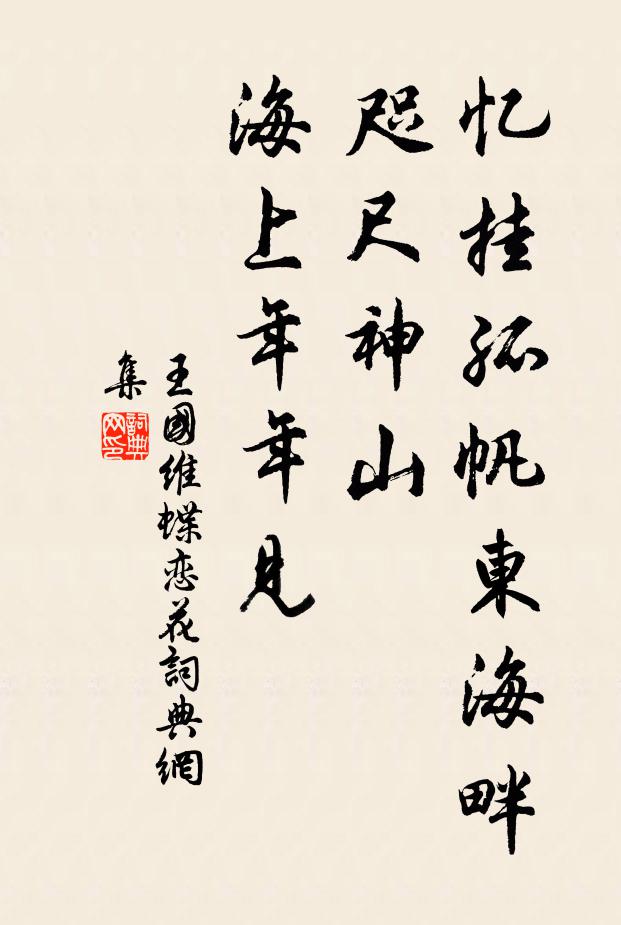 忆挂孤帆東海畔
咫尺神山
海上年年見
王國維蝶恋花詞典網
集
詞典
网印